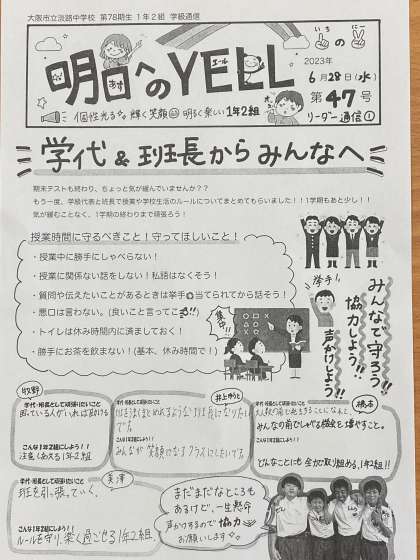 大阪市立淡路中学校 第78期生 1年2組 学級通信
いちのにー
明日へのYELL
あす
エール
2023年
6月28日(水)
第47号
リーダー通信①
個性光る 輝く笑顔 明るく楽しい 1年2組
学代&班長からみんなへ
期末テストも終わり、ちょっと気が緩んでいませんか??
もう一度、学級代表と班長で授業や学校生活のルールについてまとめてもらいました!!!1学期もあと少し!!
気が緩むことなく、1学期の終わりまで頑張ろう!
授業時間に守るべきこと!守ってほしいこと!
・授業中に勝手にしゃべらない!
・授業に関係ない話をしない!私語はなくそう!
・質問や伝えたいことがあるときは挙手 当てられてから話そう!
・悪口は言わない。(良いこと言ってこ!!)
・トイレは休み時間内に済ましておく!
・勝手にお茶を飲まない!(基本、休み時間で!)
挙手!
集中!!
みんなで守ろう!!
協力しよう!
声かけしよう!!
牧野
学代・班長として頑張りたいこと
困っている人がいれば助ける
こんな1年2組にしよう!!
注意しあえる1年2組
井上ゆうと
学代・班長として頑張りたいこと
班をまとめれるような班長になりたいです
こんな1年2組にしよう!!
みんなが笑顔になるクラスにしたいです
橋本
学代・班長として頑張りたいこと
みんなの前でしゃべる機会を増やすこと。
こんな1年2組にしよう!!
どんなことにも全力で取り組める、1年2組!!
学代・班長として頑張りたいこと
班を引っ張っていく。
こんな1年2組にしよう!!
ルールを守り、楽しく過ごせる1年2組
まだまだなところも
あるけど、一生懸命
声かけするので協力
お願いします